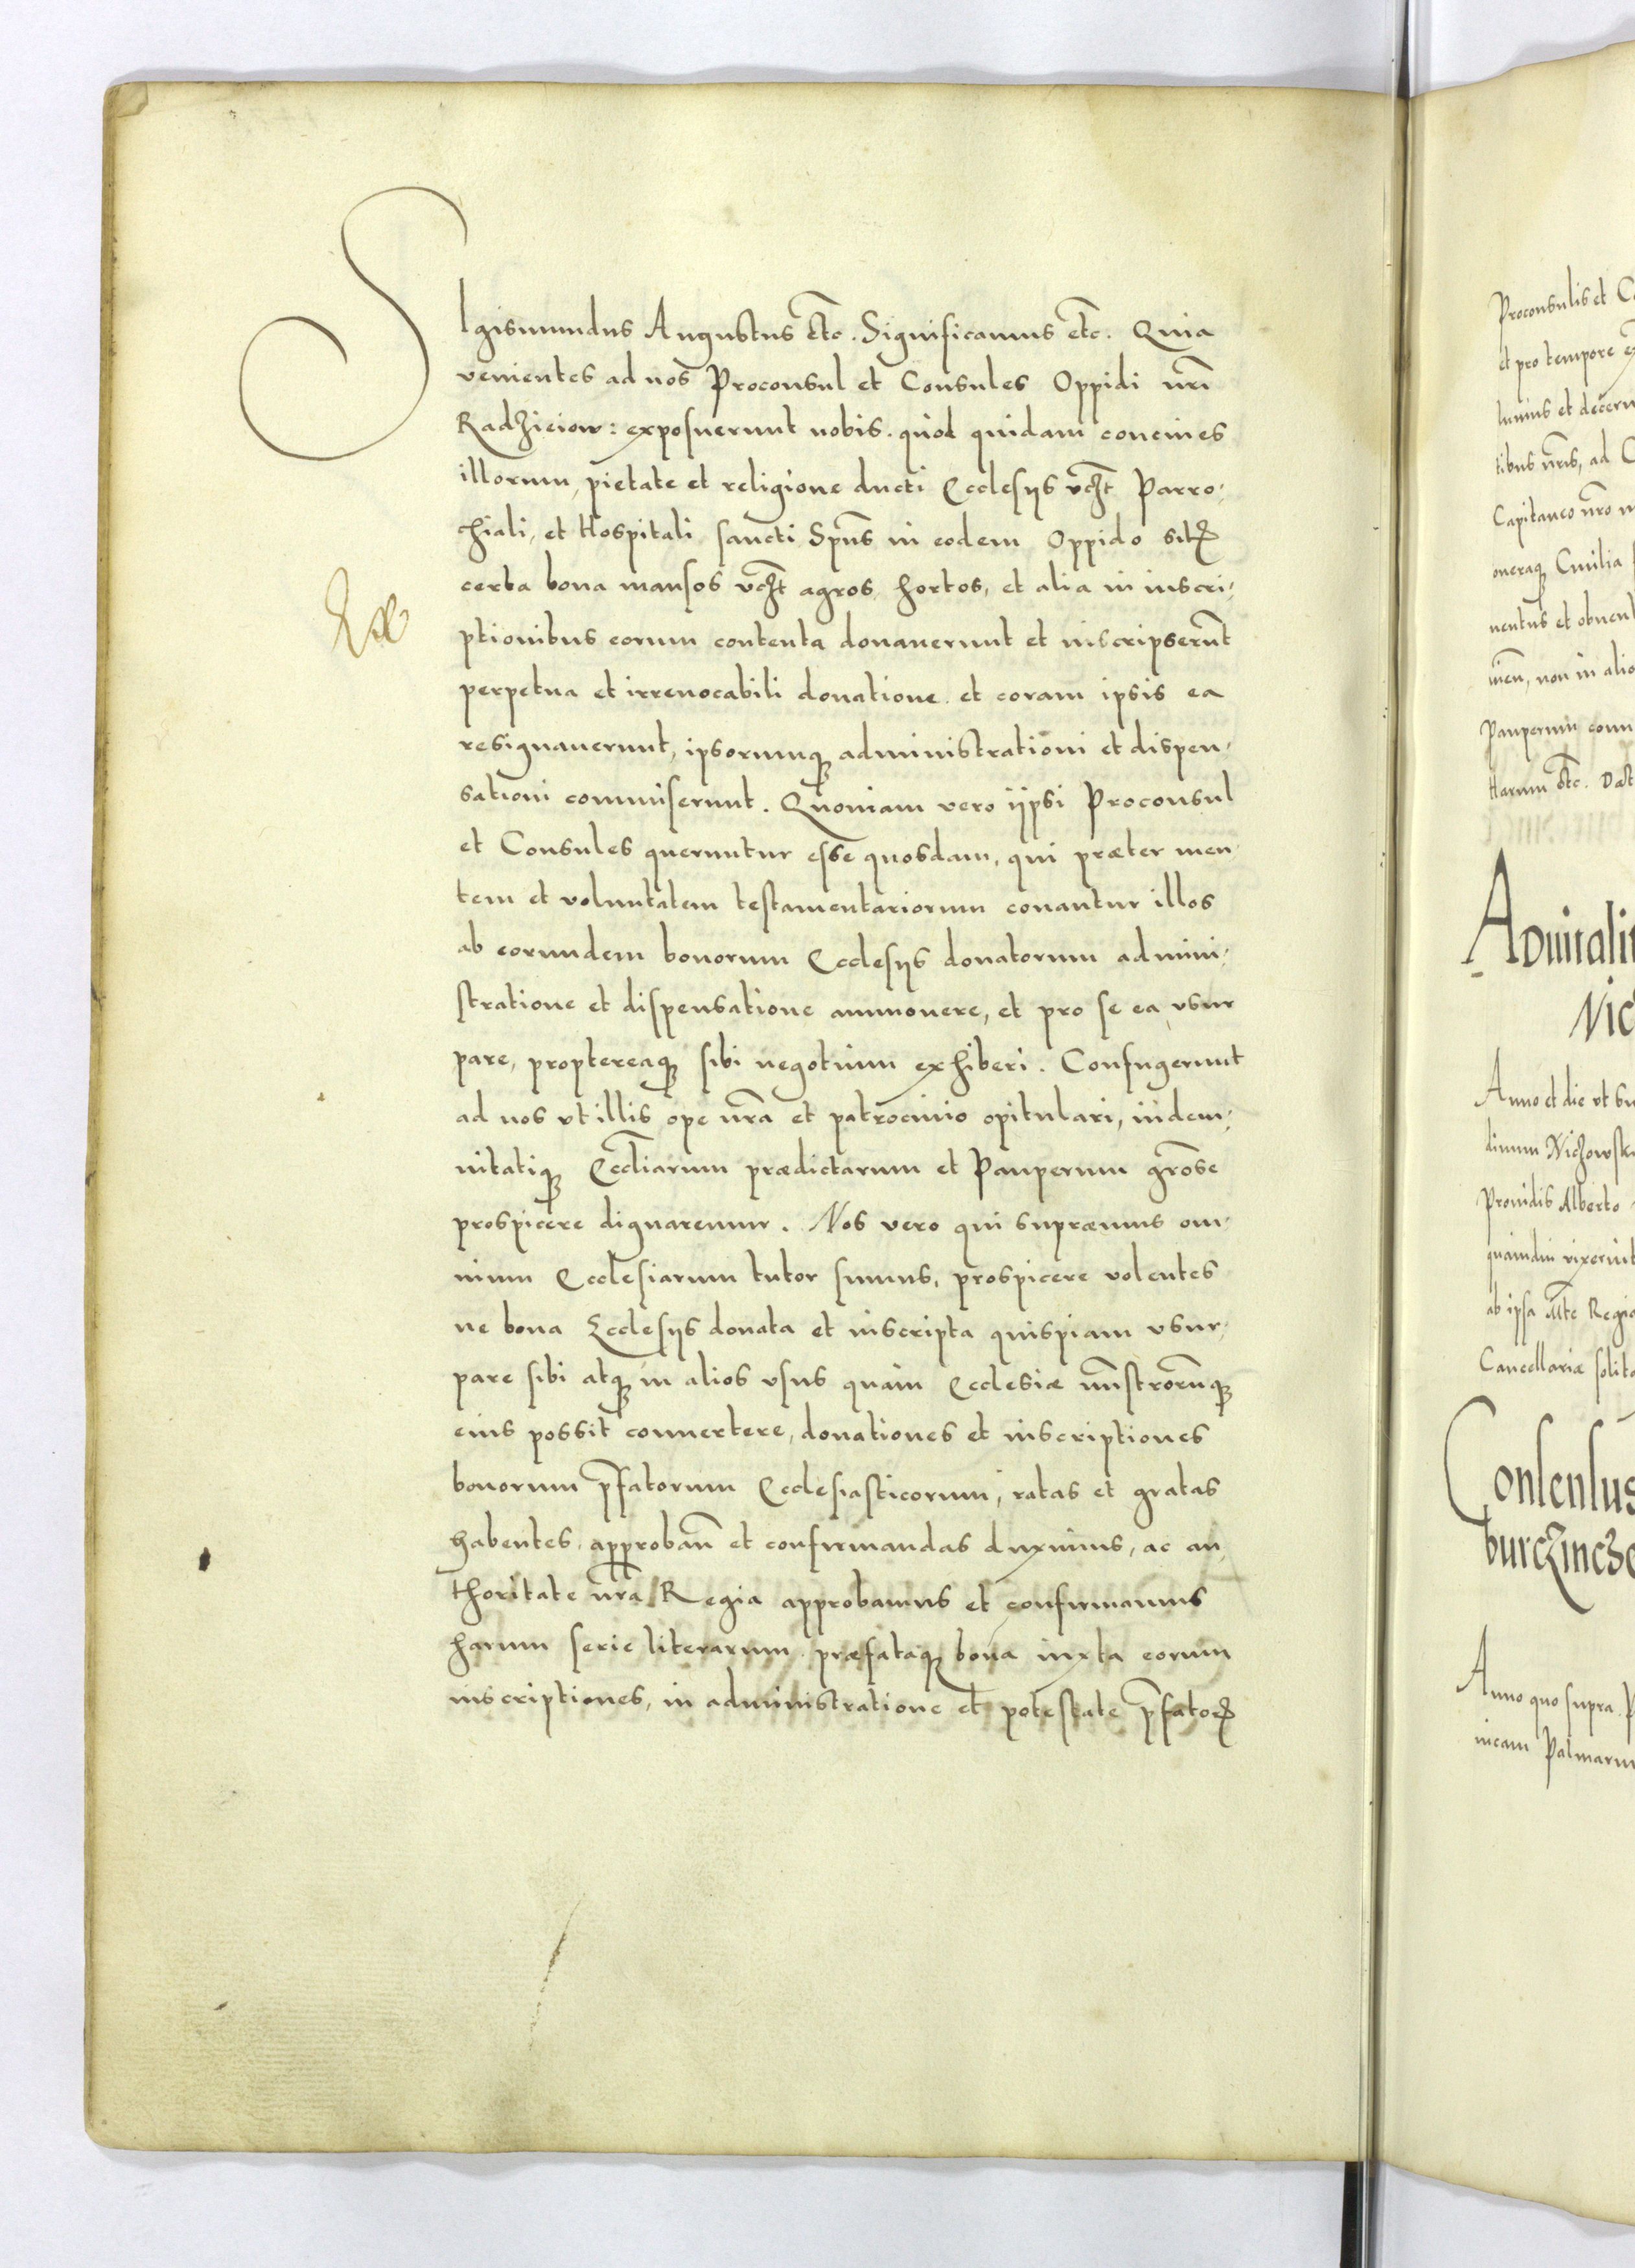 SIgismundus Augustus etc. Significamus etc. Quia
venientes ad nos Proconsul et Consules Oppidi nrĩ
Radzieiow: exposuerunt nobis. quod quidam conciues
illorum, pietate et religione ducti Ecclesijs vcżt Parro,
chiali, et Hospitali sancti Spũs in eodem Oppido sitꝝ
certa bona mansos vcżt agros, hortos, et alia in inscri,
ptionibus eorum contenta donauerunt et inscripserũt
perpetua et irreuocabili donatione. et coram ipsis ea
resignauerunt, ipsorumqꝫ administrationi et dispen,
sationi commiserunt. Quoniam vero ijpsi Proconsul
et Consules queruntur esse quosdam, qui præter men
tem et voluntatem testamentariorum conantur illos
ab eorundem bonorum Ecclesijs donatorum admini,
stratione et dispensatione ammouere, et pro se ea vsur
pare, proptereaqꝫ sibi negotium exhiberi. Confugerunt
ad nos vt illis ope nrã et patrocinio opitulari, indem,
nitatiqꝫ Eccliarum prædictarum et Pauperum grõse
prospicere dignaremur. Nos vero qui supræmus om,
nium Ecclesiarum tutor sumus, prospicere volentes
ne bona Ecclesijs donata et inscripta quispiam vsur,
pare sibi atqꝫ in alios vsus quàm Ecclesiæ mĩnstrorũqꝫ
eius possit conuertere, donationes et inscriptiones
bonorum p̃fatorum Ecclesiasticorum, ratas et gratas
habentes, approbañ et confirmandas duximus, ac au
thoritate nrã Regia approbamus et confirmamus
harum serie literarum. præfataqꝫ bona iuxta eorum
inscriptiones, in administratione et potestate p̃fatoꝝ
Proconsulis et
et pro tempore
tibus nrĩs, ad
Capitaneo nrõ
oneraqꝫ Ciuilia
uentus et obuent
non in alio
Pauperum
Harum etc. Dat
Aduitalit
Anno et die vt su
Nichowsk
Prouidis Alberto
quamdiu vixerint
ab ipsa Mte Regia
Cancellariæ solit
Consensus
burczincze
Anno quo supra
nicam Palmarum